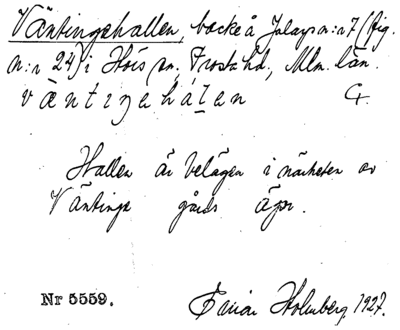 Väntingehallen, backe å Jularps n:r 7 (fig.
n:r 24) i Hörs sn, Frosta hd, Mlm. län.
väntiŋehálen
Hallen är belägen i närheten av
Väntinge gårds ägor.
Nr 5559. Einar Holmberg 1927.